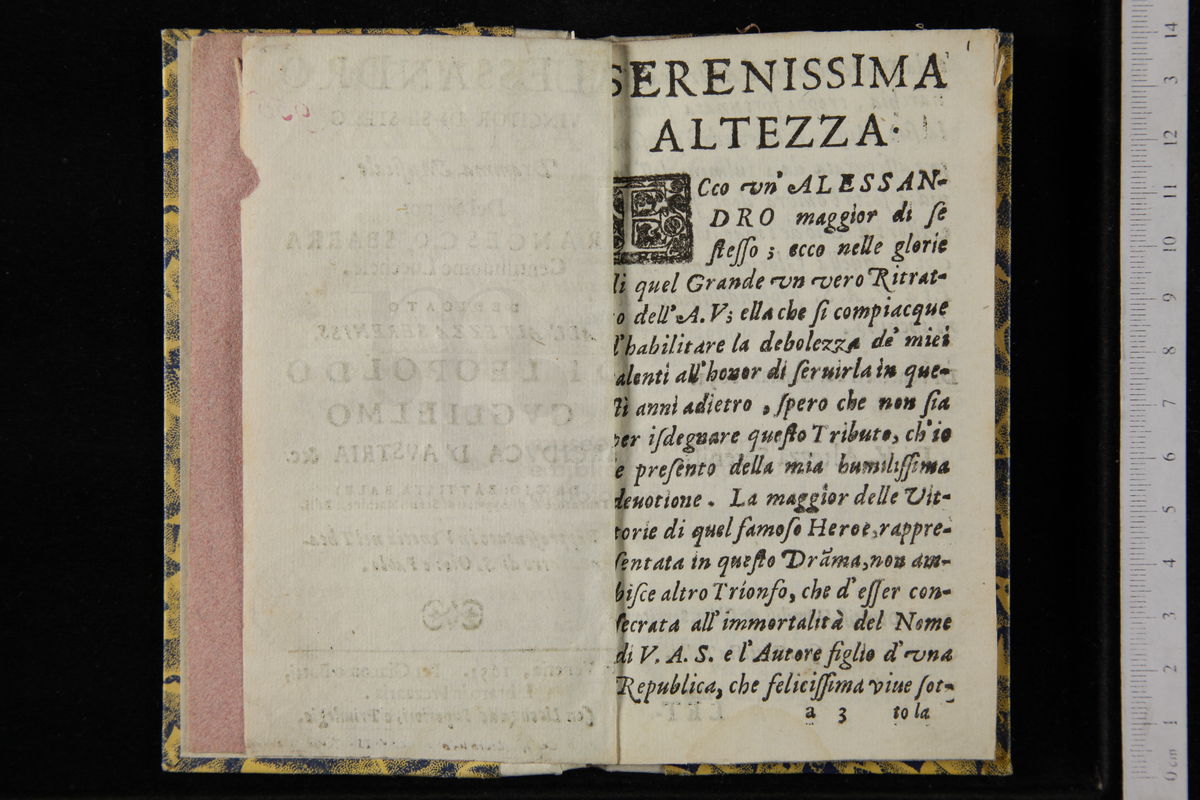 1
SERENISSIMA
ALTEZZA.
ECco vn' ALESSAN-
DRO maggior di ſe
ſteſſo; ecco nelle glorie
di quel Grande vn vero Ritrat-
to dell' A. V; ella che ſi compiacque
d'habilitare la debolezza de' miei
talenti all'honor di ſeruirla in que-
ſti anni adietro, ſpero che non ſia
per iſdegnare queſto Tributo, ch'io
le preſento della mia humiliſſima
deuotione. La maggior delle Vit-
torie di quel famoſo Heroe, rappre-
ſentata in queſto Drãma, non am-
biſce altro Trionfo, che d'eſſer con-
ſecrata all'immortalità del Nome
di V. A. S. e l'Autore figlio d'vna
Republica, che feliciſſima viue ſot-
a 3 to la